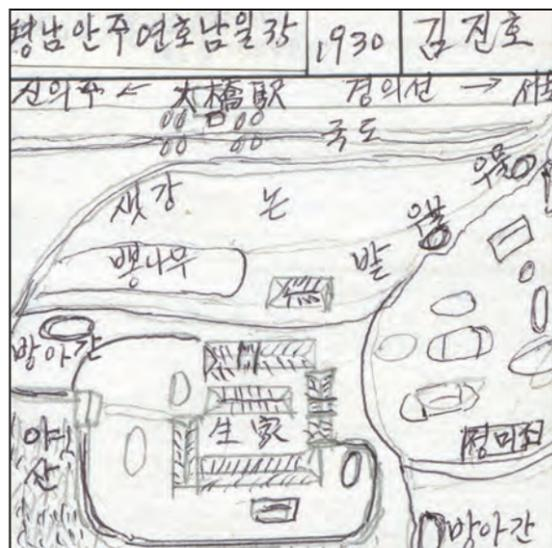 평남 안주 연호 남일 35 1930 김진호
신의주 ← 大橋駅 경의선 →
국도
우물
샛강 논
우물
뽕나무 밭
방아간
生家
야산
정미소
방아간